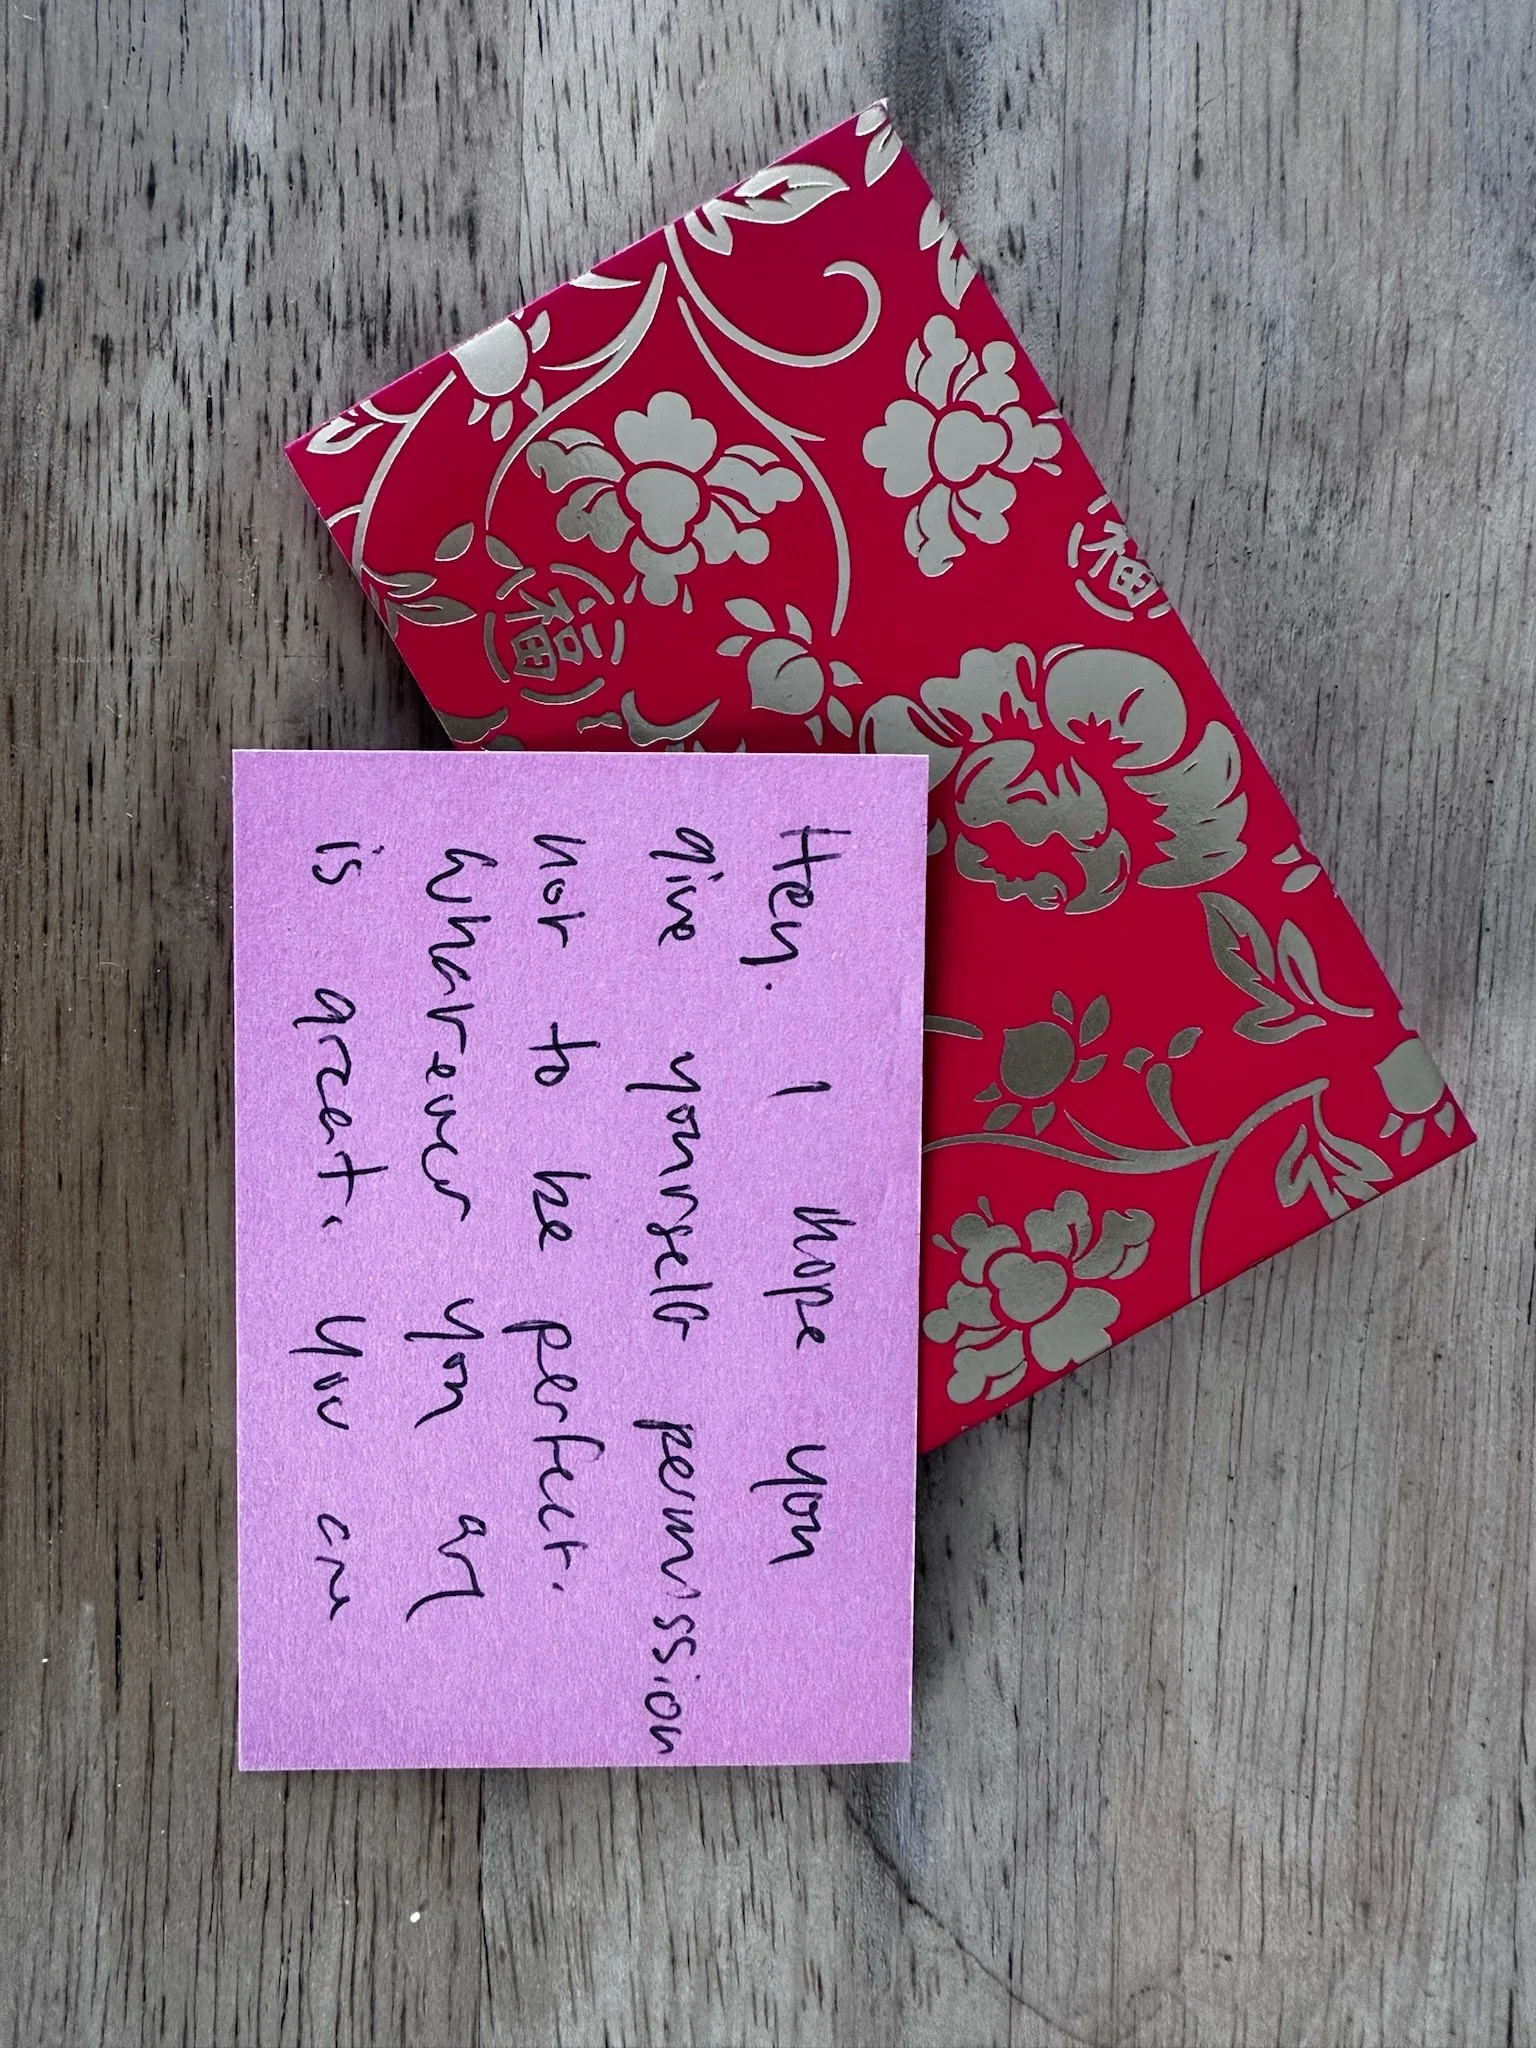 Hey. I hope you
give yourself permission
not to be perfect.
Whatever you are
is great. You are
福
福